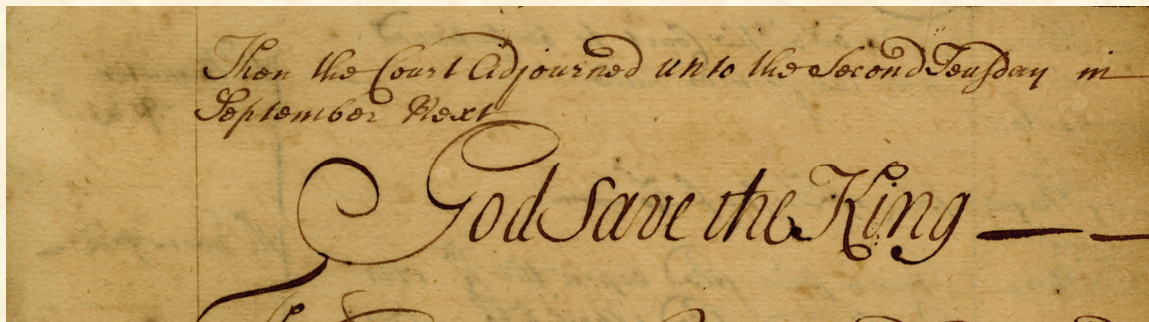 Then the Court Adjourned unto the Second Teusday in
September Next
God Save the King